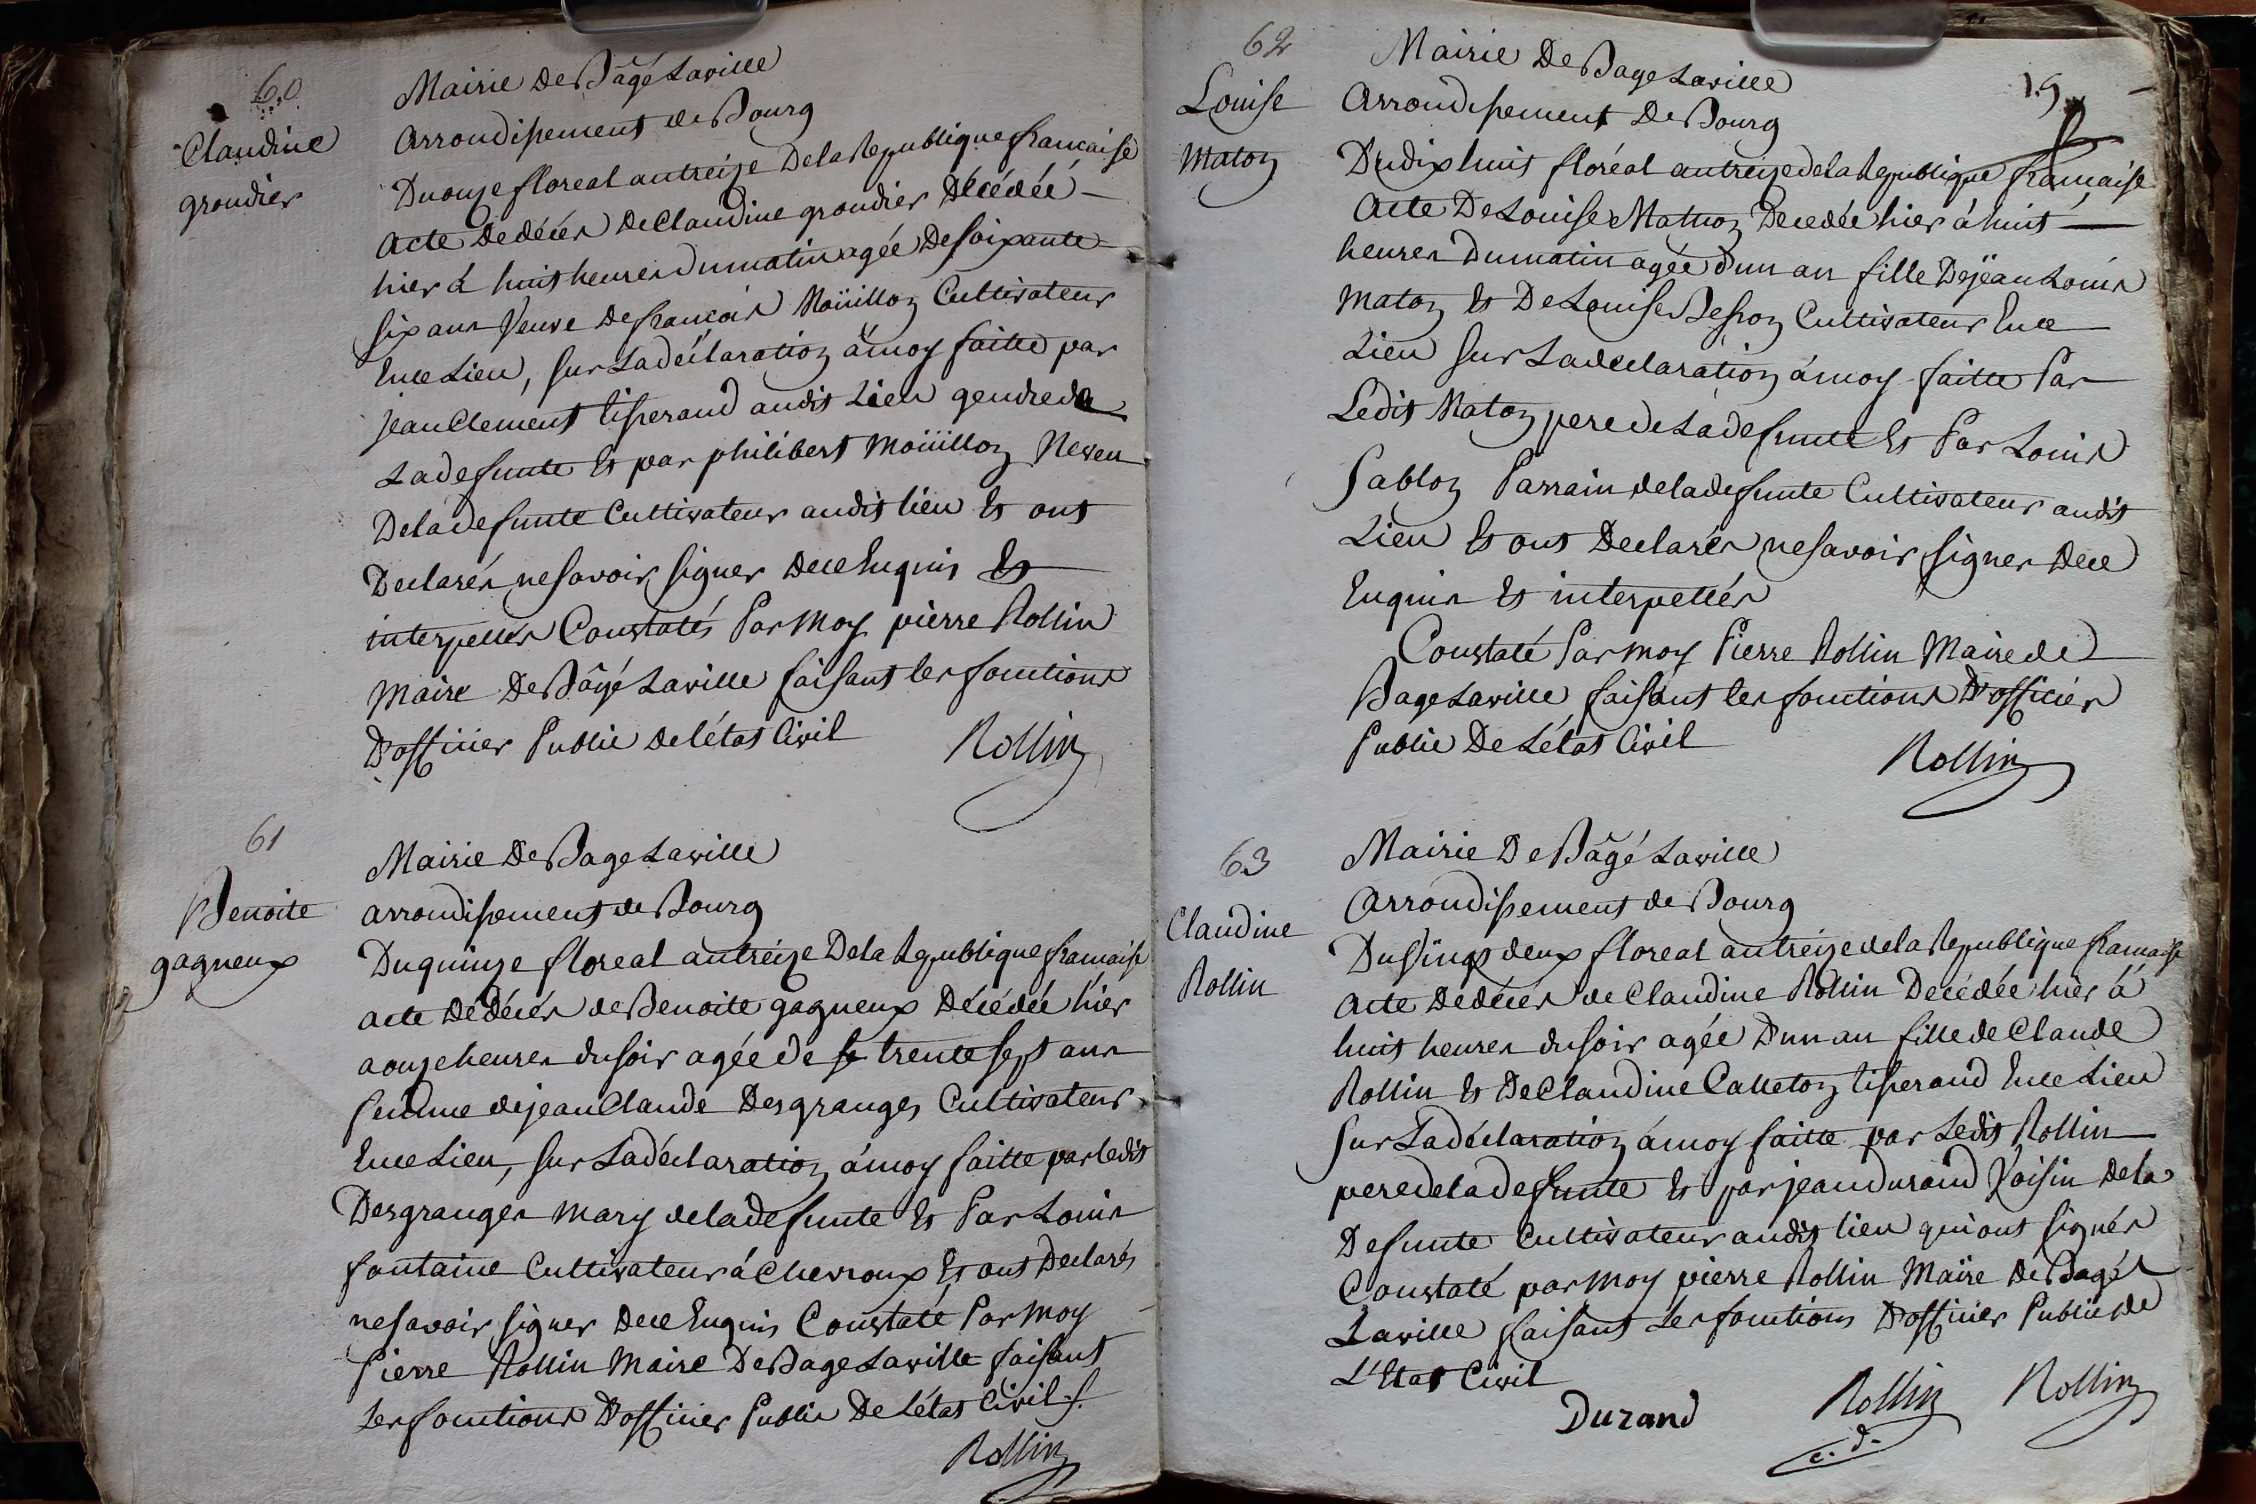 60
Claudine
grondier
Mairie de Bâgé Laville
Arrondissement de Bourg
Du onze floreal an treize De la Republique francaise
Acte de décés De Claudine grondier Décédée
hier à huit heures du matin agée De soixante
six ans Veuve de francois Moüillon Cultivateur
En ce Lieu, sur La déclaration à moy faitte par
jean Clement tisserand audit Lieu gendre de
La defunte Et par philibert Moüillon Neveu
De la defunte Cultivateur audit lieu Et ont
Declarés ne savoir signer De ce Enquis Et
interpellés Constatés Par moy pierre Rollin
Maire De Bâgé Laville faisant les fonctions
D'officier Public de l'état Civil
Rollin
61
Benoite
gagneux
Mairie De Bage Laville
arrondissement de Bourg
Du quinze floreal an treize De la Republique francaise
acte De décés de Benoite gagneux Décédée hier
a onze heures du soir agée de trente sept ans
femme de jean Claude Desgranges Cultivateur
En ce Lieu, sur La déclaration à moy faitte par ledit
Desgranges mary de la defunte Et Par Louis
fontaine Cultivateur à Chevroux Et ont Declarés
ne savoir signer De ce Enquis Constaté Par moy
Pierre Rollin Maire De Bage Laville faisant
Les fonctions D'officier Public De L'état Civil
Rollin
62
19
Louise
Maton
Mairie De Bage Laville
Arrondissement De Bourg
Du dix huit floréal an treize de la Republique francaise
Acte De Louise Maton Decedée hier à huit
heures Du matin agée d'un an fille De jean Louis
Maton Et De Louise Besson Cultivateur En ce
Lieu sur La declaration à moy faitte Par
Ledit Maton pere de La defunte Et Par Louis
Sablon Parrain de la defunte Cultivateur audit
Lieu Et ont Declarés ne savoir signer De ce
Enquis Et interpellés
Constaté Par moy Pierre Rollin Maire de
Bage Laville faisant les fonctions D'officier
Public De L'état Civil
Rollin
63
Claudine
Rollin
Mairie De Bâgé Laville
Arrondissement de Bourg
Du vingt deux floreal an treize de la Republique francaise
Acte De décés de Claudine Rollin Decédée hier à
huit heures du soir agée D'un an fille de Claude
Rollin Et De Claudine Catheton tisserand En ce Lieu
sur La déclaration à moy faitte par Ledit Rollin
pere de la defunte Et par jean durand Voisin De la
Defunte Cultivateur audit lieu qui ont signés
Constaté par moy pierre Rollin Maire De Bagé
Laville faisant Les fonctions D'officier Public de
L'Etat Civil
Durand Rollin Rollin
c. d.